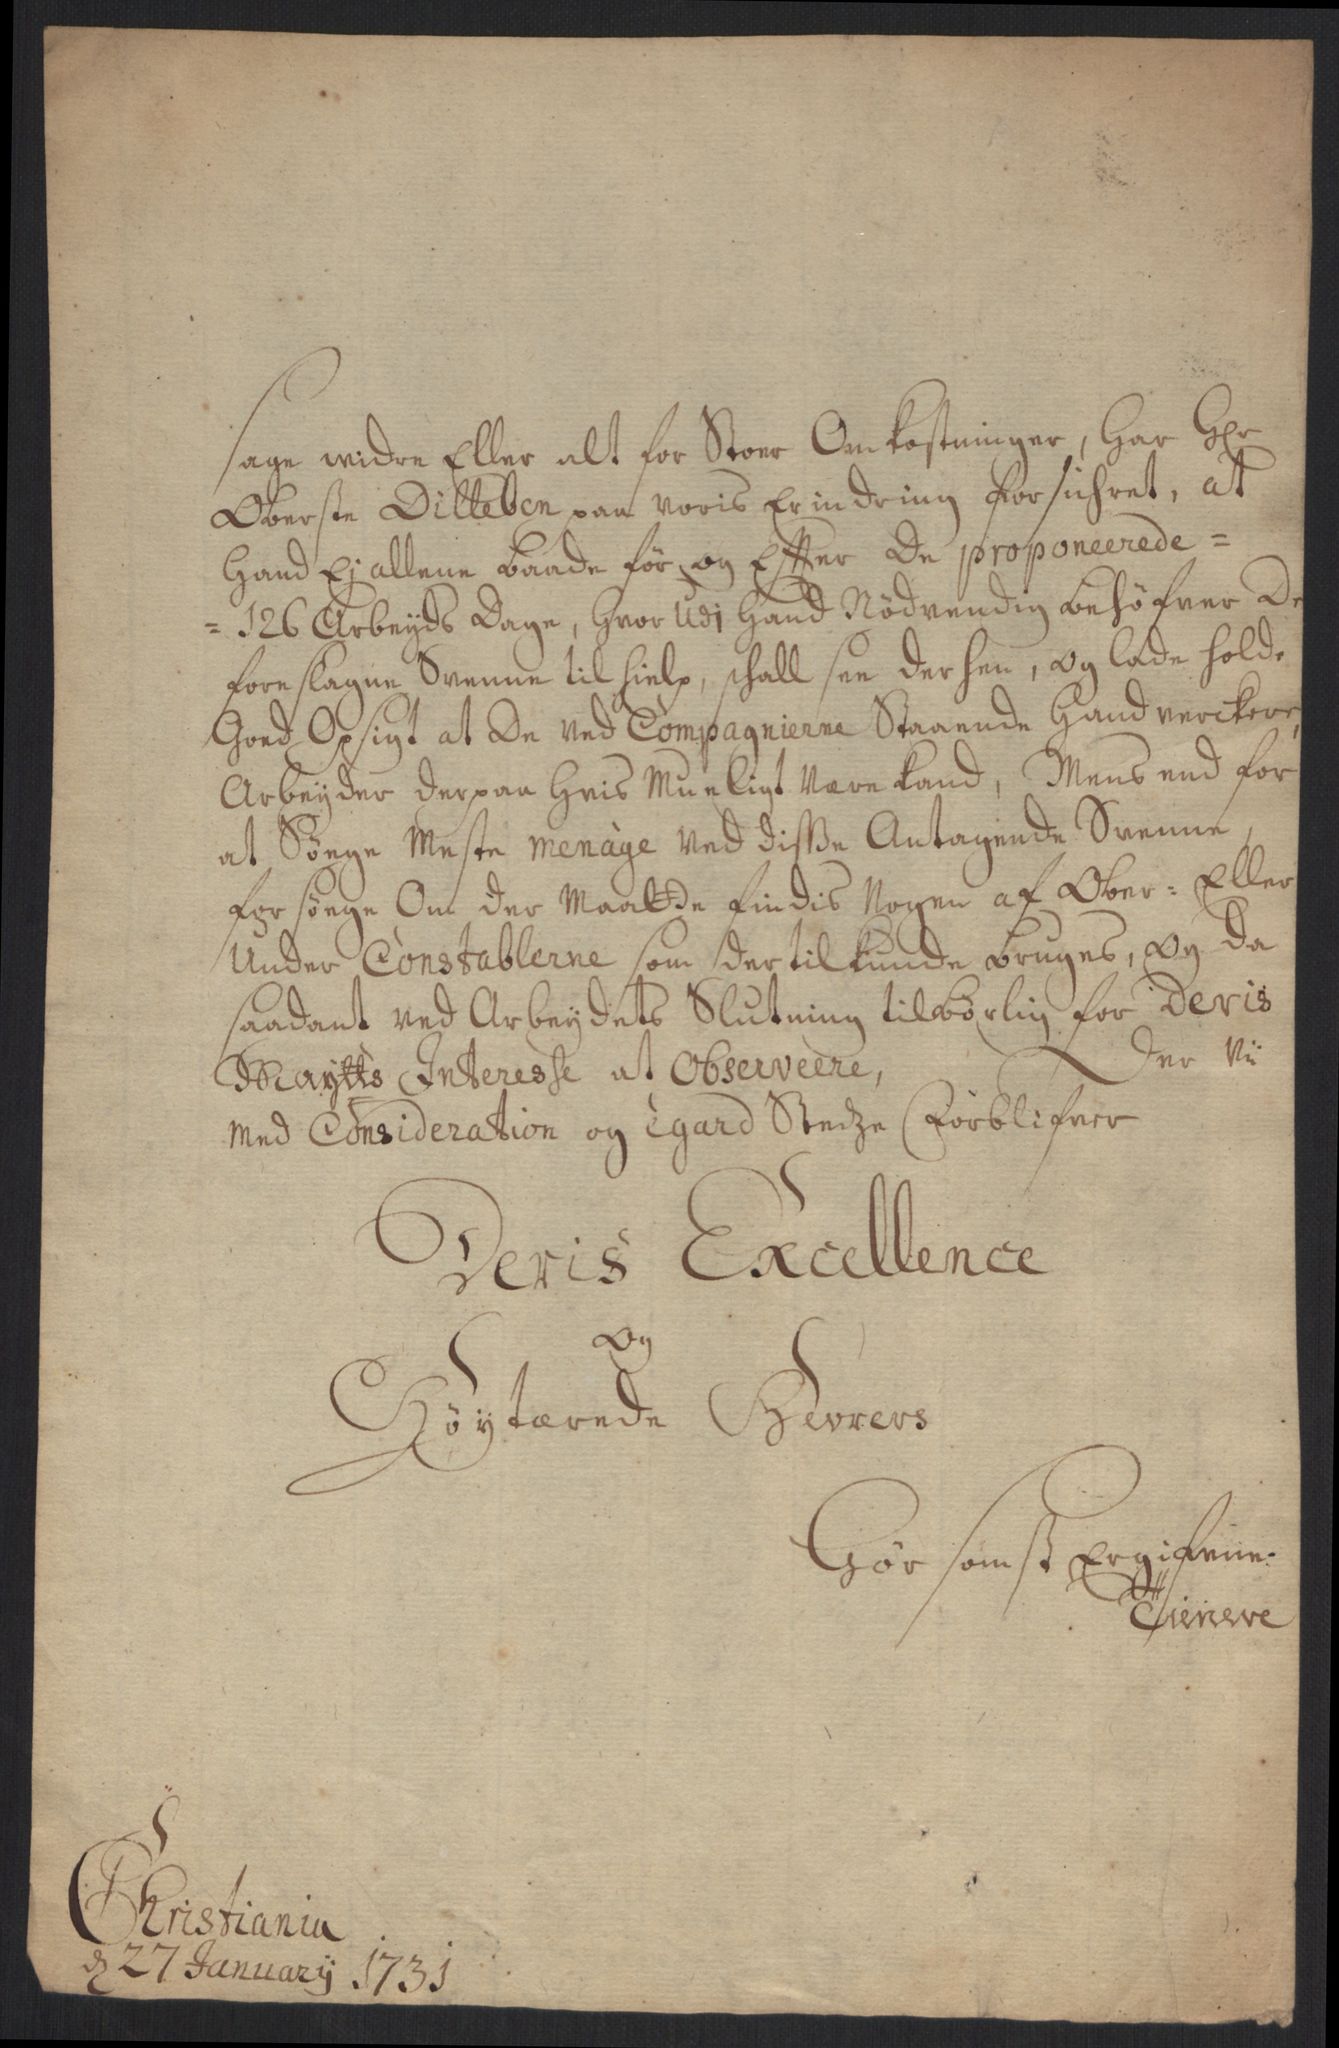 sage widre Eller alt for Stoer Omkostninger, Har Hr
Oberste Dilleben paa voris Erindring forsichret, at
Hand Ej allene baade før og Efter De proponeerede =
= 126 Arbeyds Dage, hvor Udj Hand Nødvendig behøfver De
foreslagne Svenne til hielp, schall see derhen, og lade holde
Goed Opsigt at De ved Compagnierne Staaende Handverckere,
Arbeyder derpaa hvis Mueligt være kand, Mens end for
at Søege Meste menàge ved disse Antagende Svenne,
forsøege Om der Maatte findis Nogen af Ober = Eller
Under Constablerne som dertil kunde bruges, og da
saadant ved Arbeydets Slutning tilbørlig for Deris
Maytts Interesse at Observeere, Der Vii
med Consideration og Egard Stedze forblifver
Deris Excellence
og
Høytærede Herrers
Hør somst Ergifvne
Tienere
Christiania
d 27 January 1731